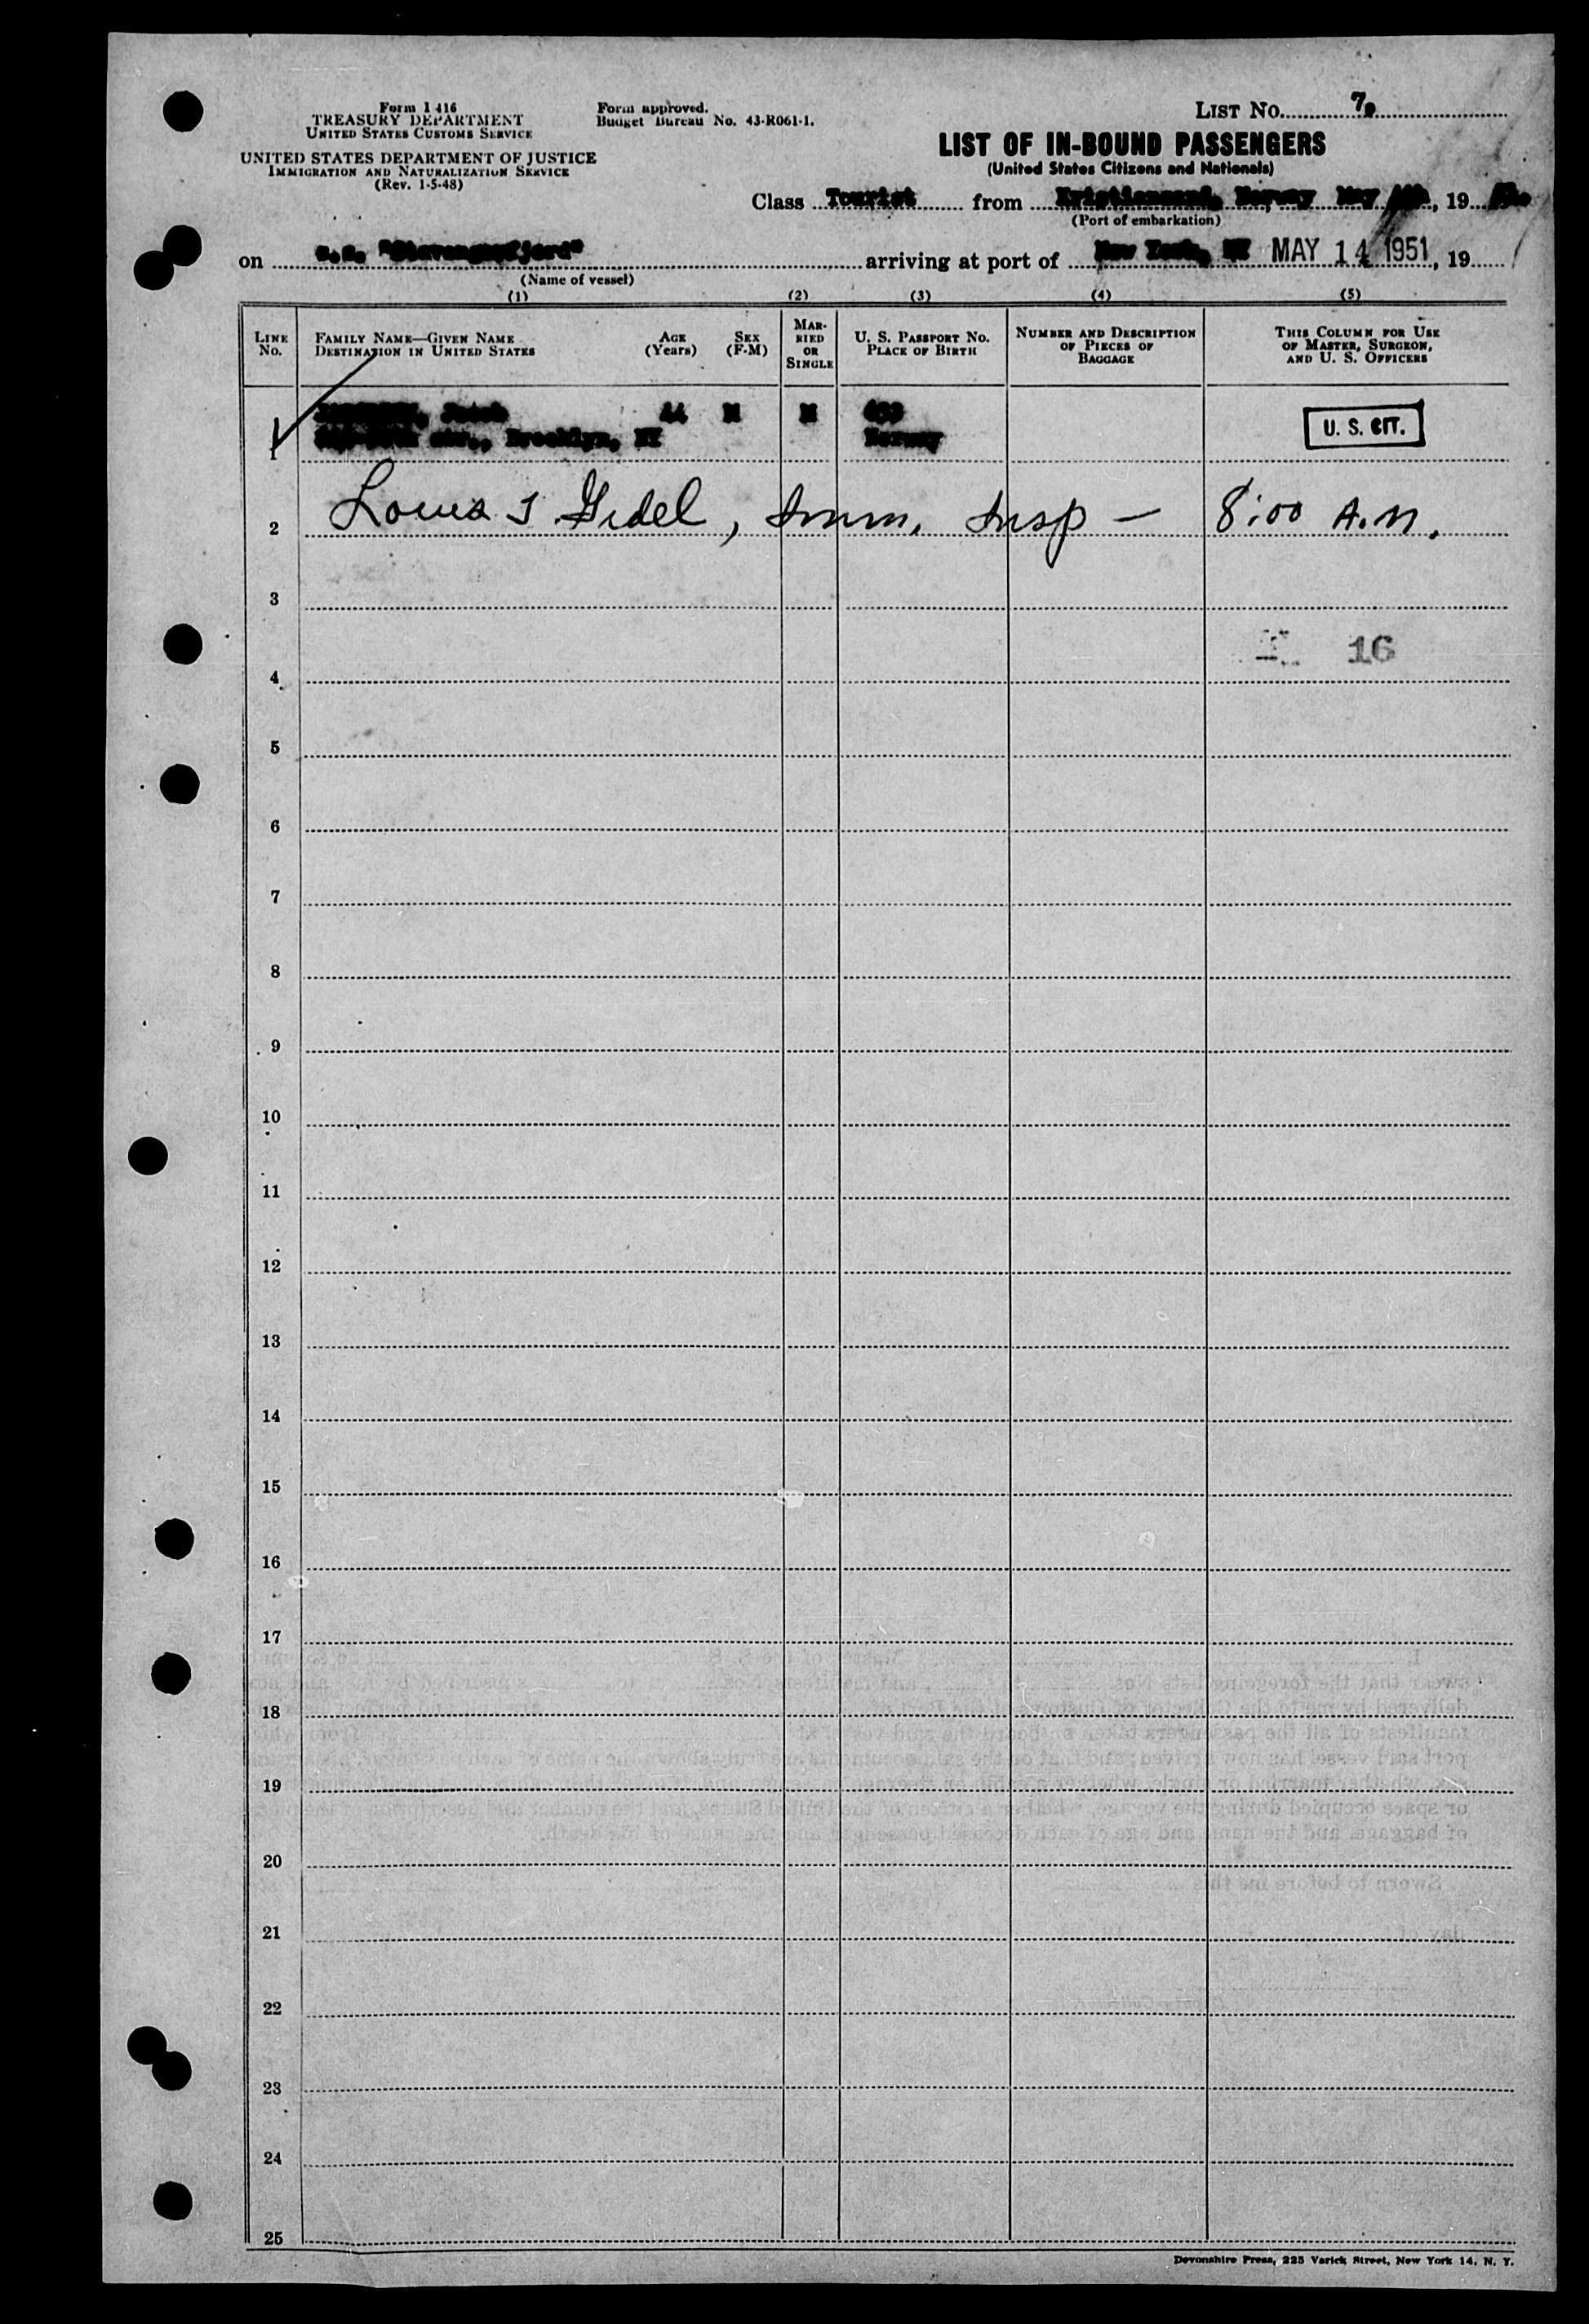 Form I 416
TREASURY DEPARTMENT
UNITED STATES CUSTOMS SERVICE
UNITED STATES DEPARTMENT OF JUSTICE
IMMIGRATION AND NATURALIZATION SERVICE
(Rev. 1-5-48)
Form approved.
Budget Bureau No. 43-R061-1.
LIST NO. 7.
LIST OF IN-BOUND PASSENGERS
(United States Citizens and Nationals)
Class Tourist from Kristiansand, Norway May , 19
(Port of embarkation)
on S.S. "Stavangerfjord" arriving at port of New York, NY MAY 14 1951, 19
(Name of vessel)
(1) (2) (3) (4) (5)
LINE NO. FAMILY NAME—GIVEN NAME DESTINATION IN UNITED STATES AGE (Years) SEX (F-M) MARRIED OR SINGLE U. S. PASSPORT NO. PLACE OF BIRTH NUMBER AND DESCRIPTION OF PIECES OF BAGGAGE THIS COLUMN FOR USE OF MASTER, SURGEON, AND U. S. OFFICERS
44 M M
Brooklyn, NY Norway
U. S. CIT.
1
2 Louis J Gidel, Imm. Insp — 8:00 A.M.
3
16
4
5
6
7
8
9
10
11
12
13
14
15
16
17
18
19
20
21
22
23
24
25
Devonshire Press, 225 Varick Street, New York 14, N. Y.